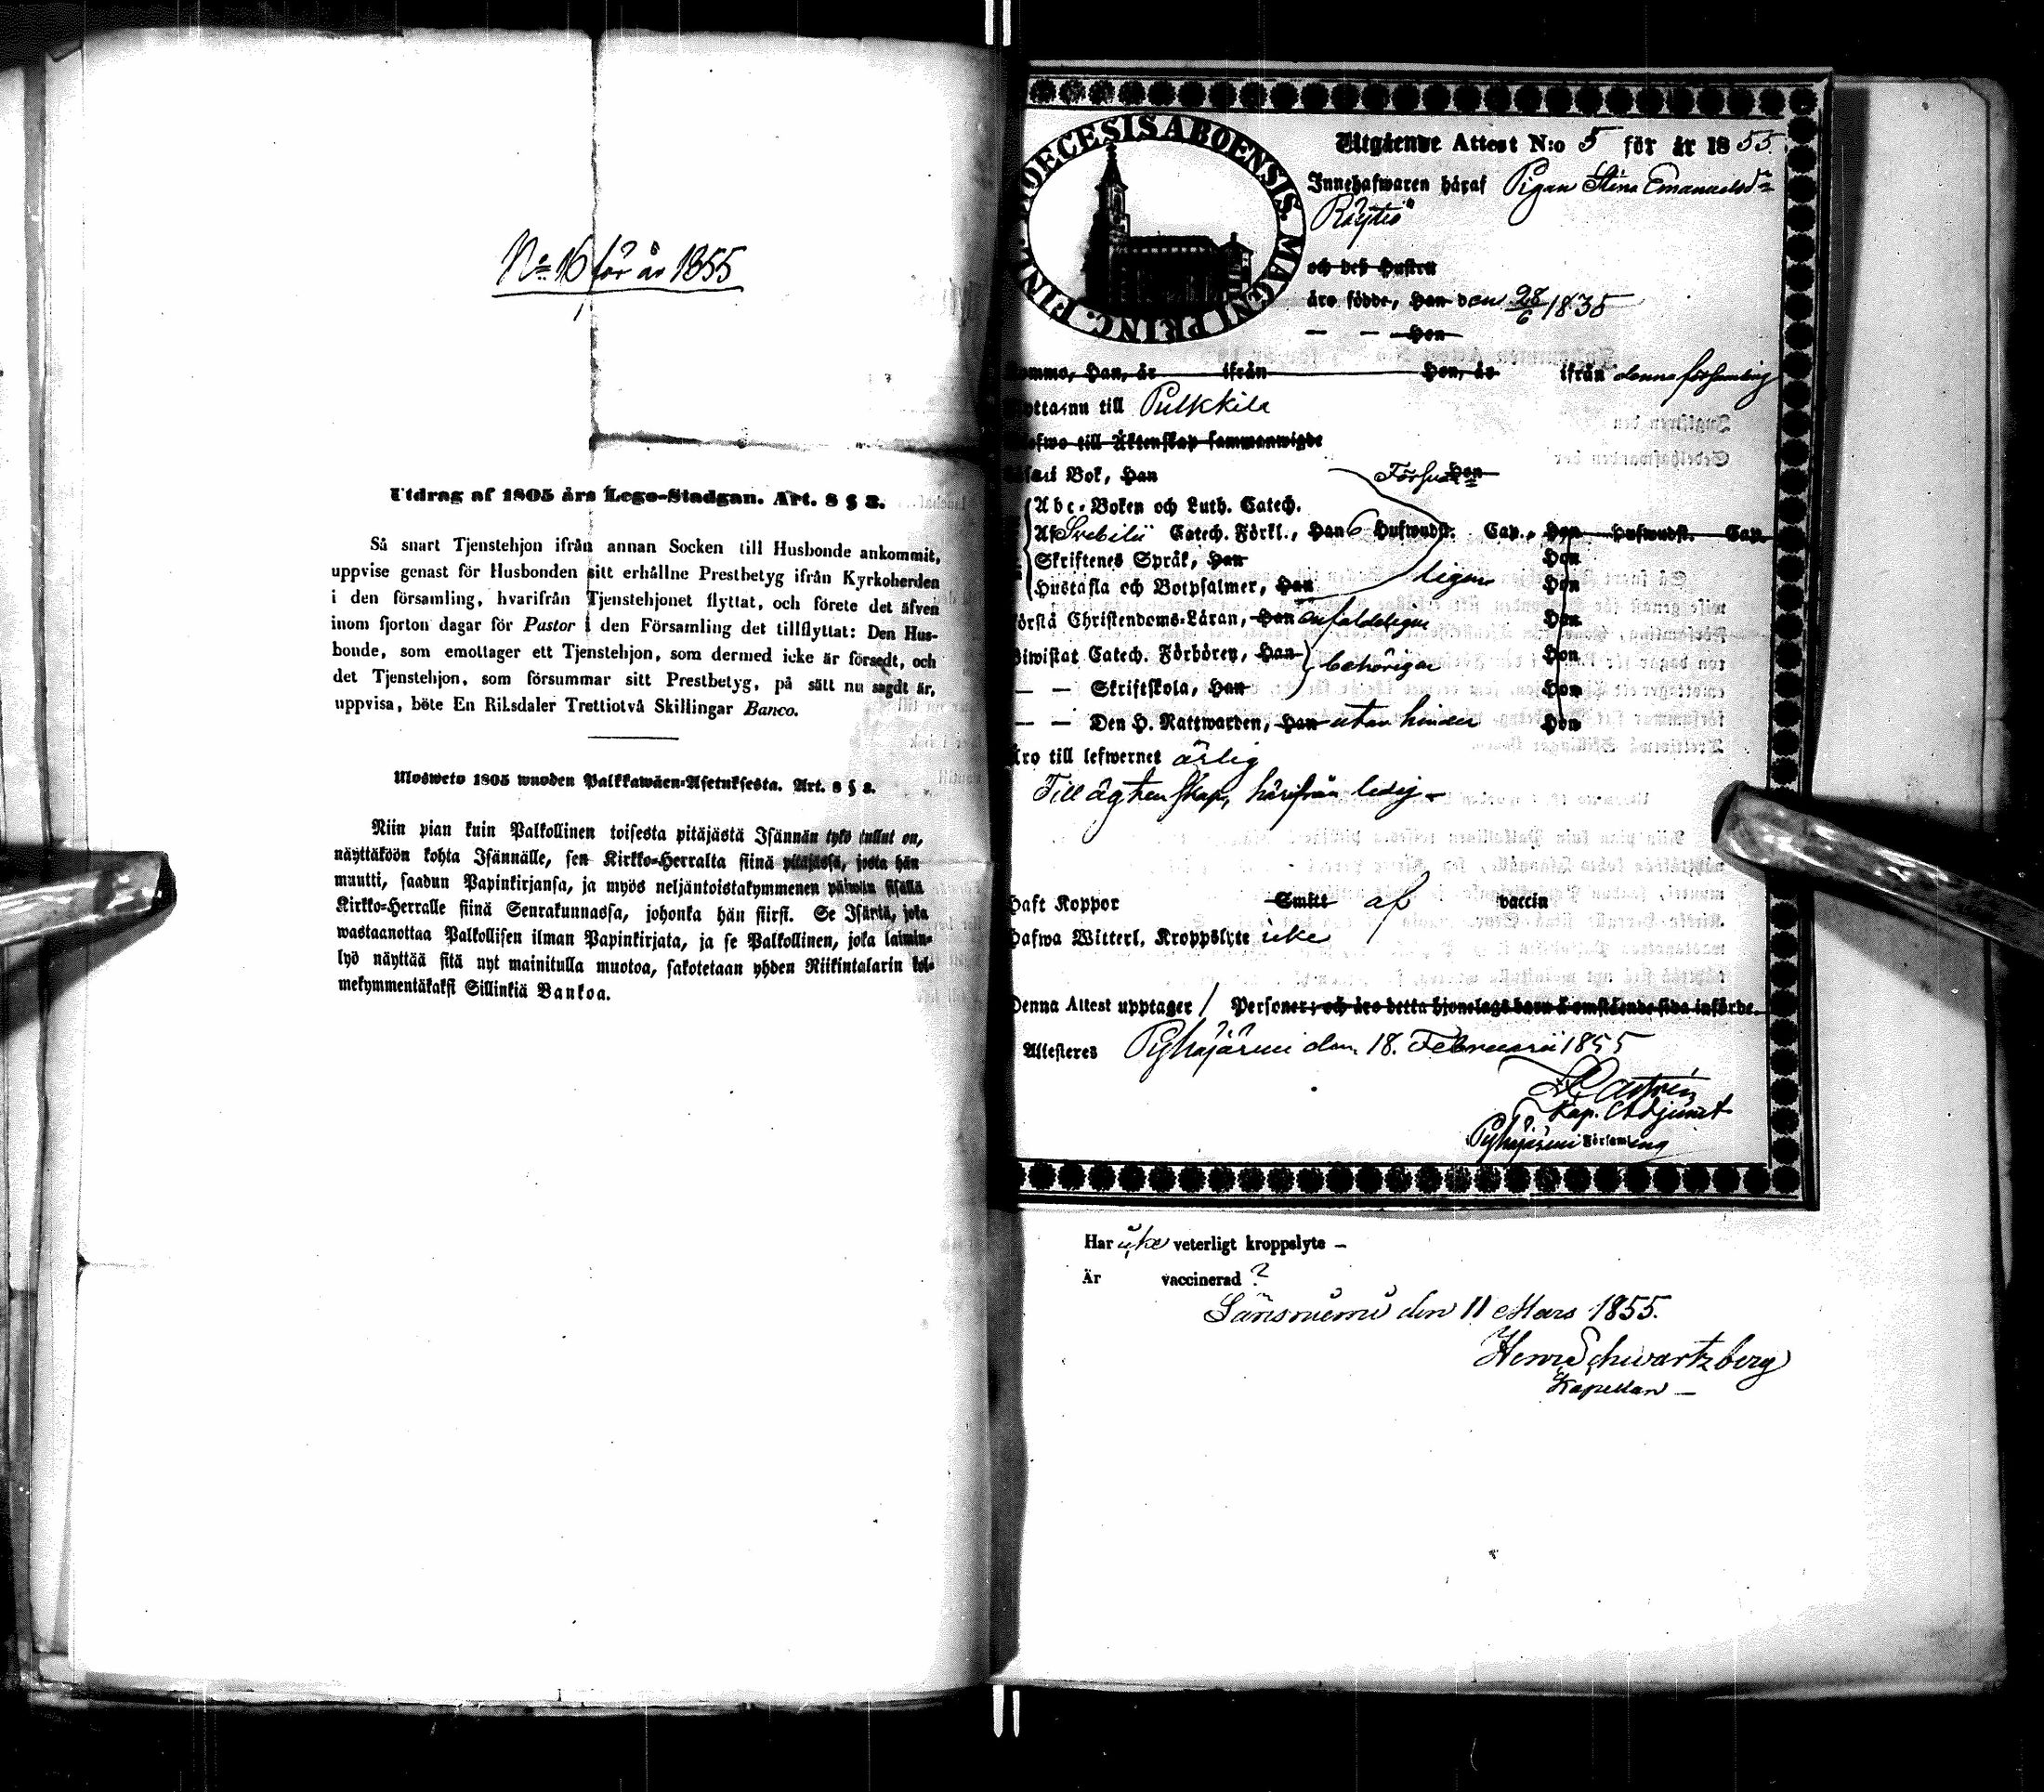 No 16 för år 1855
Utdrag af 1805 års Lego-Stadgan. Art. 8 § 3.
Så snart Tjenstehjon ifrån annan Socken till Husbonde ankommit,
uppvise genast för Husbonden sitt erhållne Prestbetyg ifrån Kyrkoherden
i den församling, hvarifrån Tjenstehjonet flyttat, och förete det äfven
inom fjorton dagar för Pastor i den Församling det tillflyttat: Den Hus-
bonde, som emottager ett Tjenstehjon, som dermed icke är försedt, och
det Tjenstehjon, som försummar sitt Prestbetyg, på sätt nu sagdt är,
uppvisa, böte En Riksdaler Trettiotvå Skillingar Banco.
Ulosweto 1805 wuoden Palkkawäen-Asetuksesta. Art. 8 § 3.
Niin pian kuin Palkollinen toisesta pitäjästä Isännän tykö tullut on,
näyttäköön kohta Isännälle, sen Kirkko-Herralta siinä pitäjässä, josta hän
muutti, saadun Papinkirjansa, ja myös neljäntoistakymmenen päiwän sisällä
Kirkko-Herralle siinä Seurakunnassa, johonka hän siirsi. Se Isäntä, joka
wastaanottaa Palkollisen ilman Papinkirjata, ja se Palkollinen, joka laimin-
lyö näyttää sitä nyt mainitulla muotoa, sakotetaan yhden Riikintalarin kol-
mekymmentäkaksi Sillinkiä Bankoa.
DIOECESIS ABOENSIS. MAGNI PRINC. FINL.
Utgående Attest N:o 5 för år 1855.
Innehafwaren häraf Pigan Stina Emanuelsdr
Räytiö
och deß Hustru
äro födde, Han den 28/6 1835
— — Hon
komme, Han, år ifrån Hon, år ifrån denna församling
flytta nu till Pulkkila
Lefwe till Äktenskap sammanwigde
Läsa i Bok, Han Hon Försva
Abc-Boken och Luth. Catech.
Af Svebilii Catech. Förkl., Han 6 Hufwudst. Cap., Hon Hufwudst. Cap.
Skriftenes Språk, Han Hon
Hustafla och Botpsalmer, Han ligen Hon
Förstå Christendoms-Läran, Han enfaldeligen Hon
Biwistat Catech. Förhören, Han behörigen Hon
— — Skriftskola, Han Hon
— — Den H. Nattwarden, Han utan hinder Hon
Äro till lefwernet ärlig
Till ägtenskap, härifrån ledig —
Haft Koppor Smitt af vaccin
Hafwa Witterl. Kroppslyte icke
Denna Attest upptager 1 Personer; och äro detta hjonelags barn å omstående sida införde.
Attesteres Pyhäjärvi den 18. Februarii 1855
Castrén
Kap. Adjunct
Pyhäjärvi Församling
Har icke veterligt kroppslyte —
Är vaccinerad ?
Länsniemi den 11 Mars 1855.
Henr Schwartzberg
Kapellan —